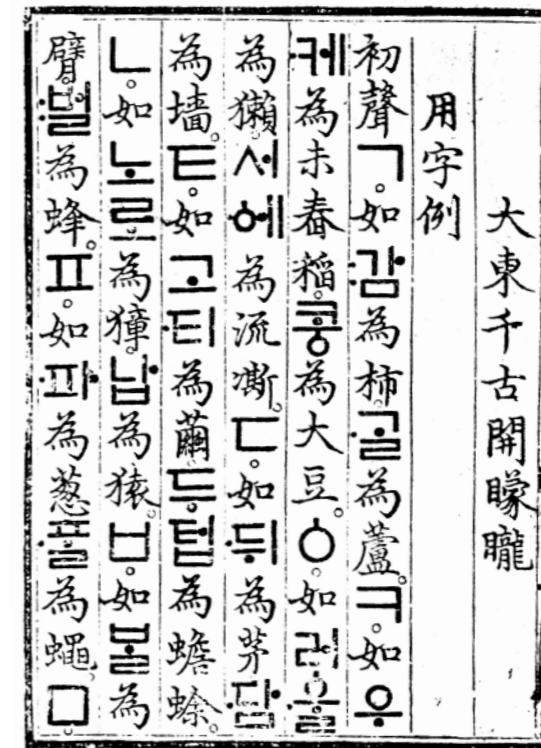 大東千古開矇矓
用字例
初聲ㄱ。如:감為柿。·ᄀᆞᆯ為蘆。ㅋ。如우
·케為未舂稻。코ᇰ為大豆。ㆁ。如러·ᅌᅮᆯ
為獺。서·ᅌᅦ為流凘。ㄷ。如·뒤為茅。·담
為墻。ㅌ。如고·티為繭。두텁為蟾蜍。
ㄴ。如노로為獐。납為猿。ㅂ。如ᄇᆞᆯ為
臂。:벌為蜂。ㅍ。如·파為葱。·ᄑᆞᆯ為蠅。ㅁ